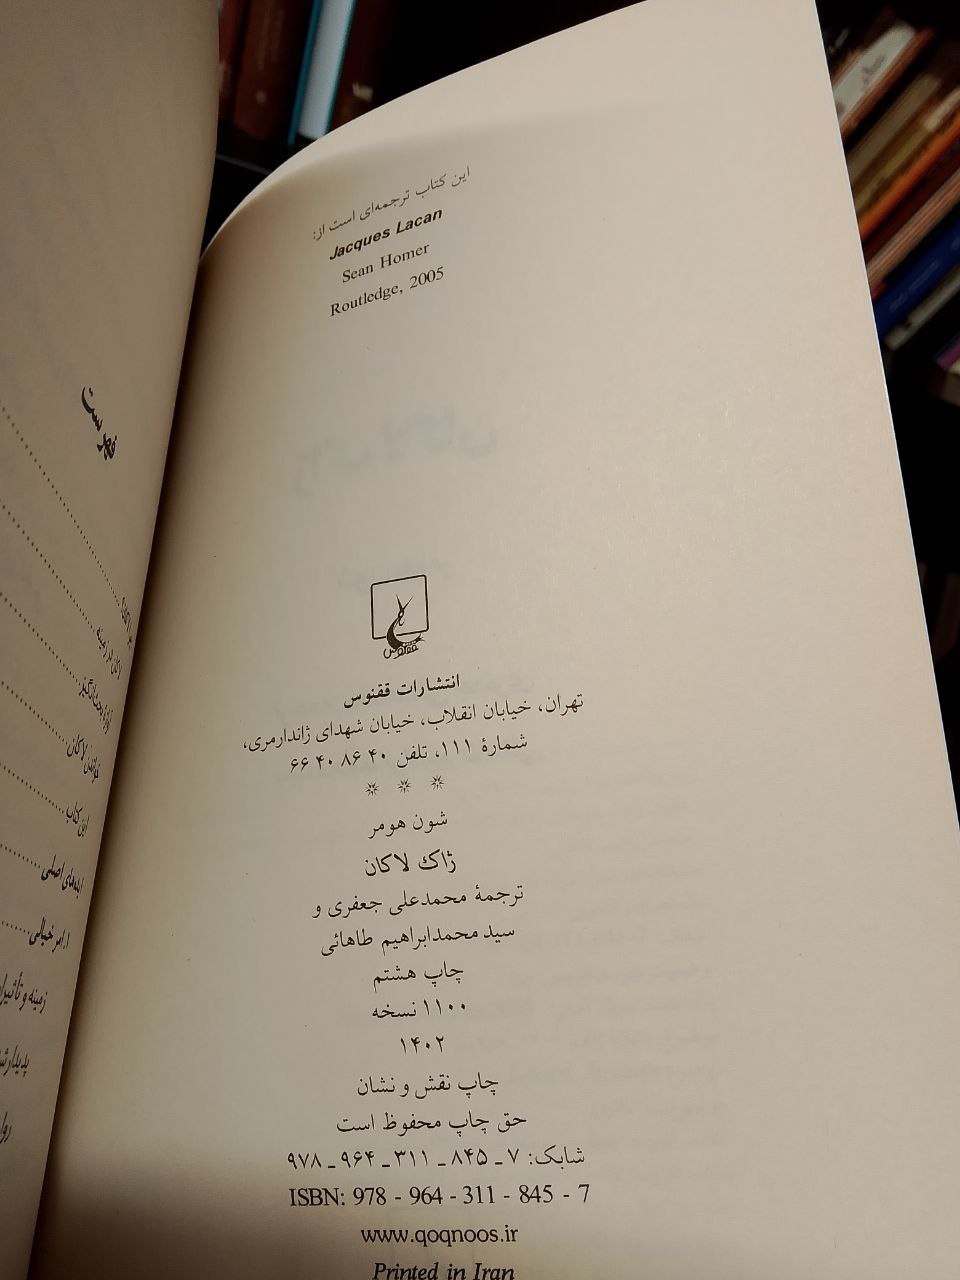 این کتاب ترجمه‌ای است از:
Jacques Lacan
Sean Homer
Routledge, 2005
ققنوس
انتشارات ققنوس
تهران، خیابان انقلاب، خیابان شهدای ژاندارمری،
شمارهٔ ۱۱۱، تلفن ۴۰ ۸۶ ۴۰ ۶۶
* * *
شون هومر
ژاک لاکان
ترجمهٔ محمدعلی جعفری و
سید محمدابراهیم طاهائی
چاپ هشتم
۱۱۰۰ نسخه
۱۴۰۲
چاپ نقش و نشان
حق چاپ محفوظ است
شابک: ۷ ـ ۸۴۵ ـ ۳۱۱ ـ ۹۶۴ ـ ۹۷۸
ISBN: 978 - 964 - 311 - 845 - 7
www.qoqnoos.ir
Printed in Iran
فهرست
لاکان در زمینه
خواندن لاکان
این کتاب
ایده‌های اصلی
۱. امر خیالی
زمینه و تأثیرا